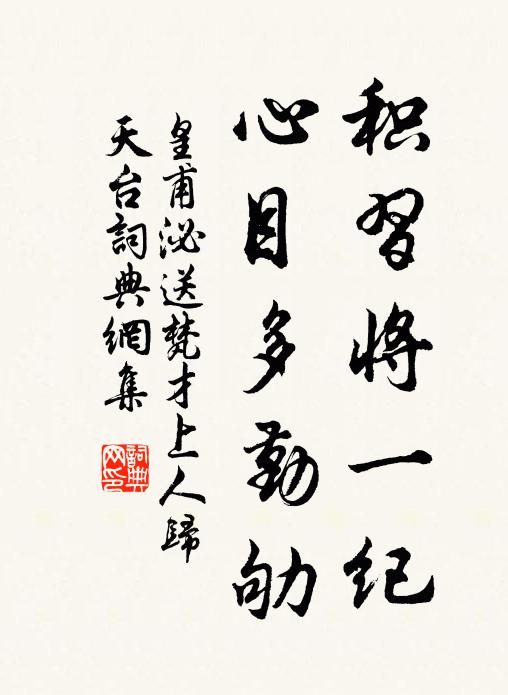 积習将一紀
心目多勤劬
皇甫泌送梵才上人歸
天台詞典網集
詞典网印